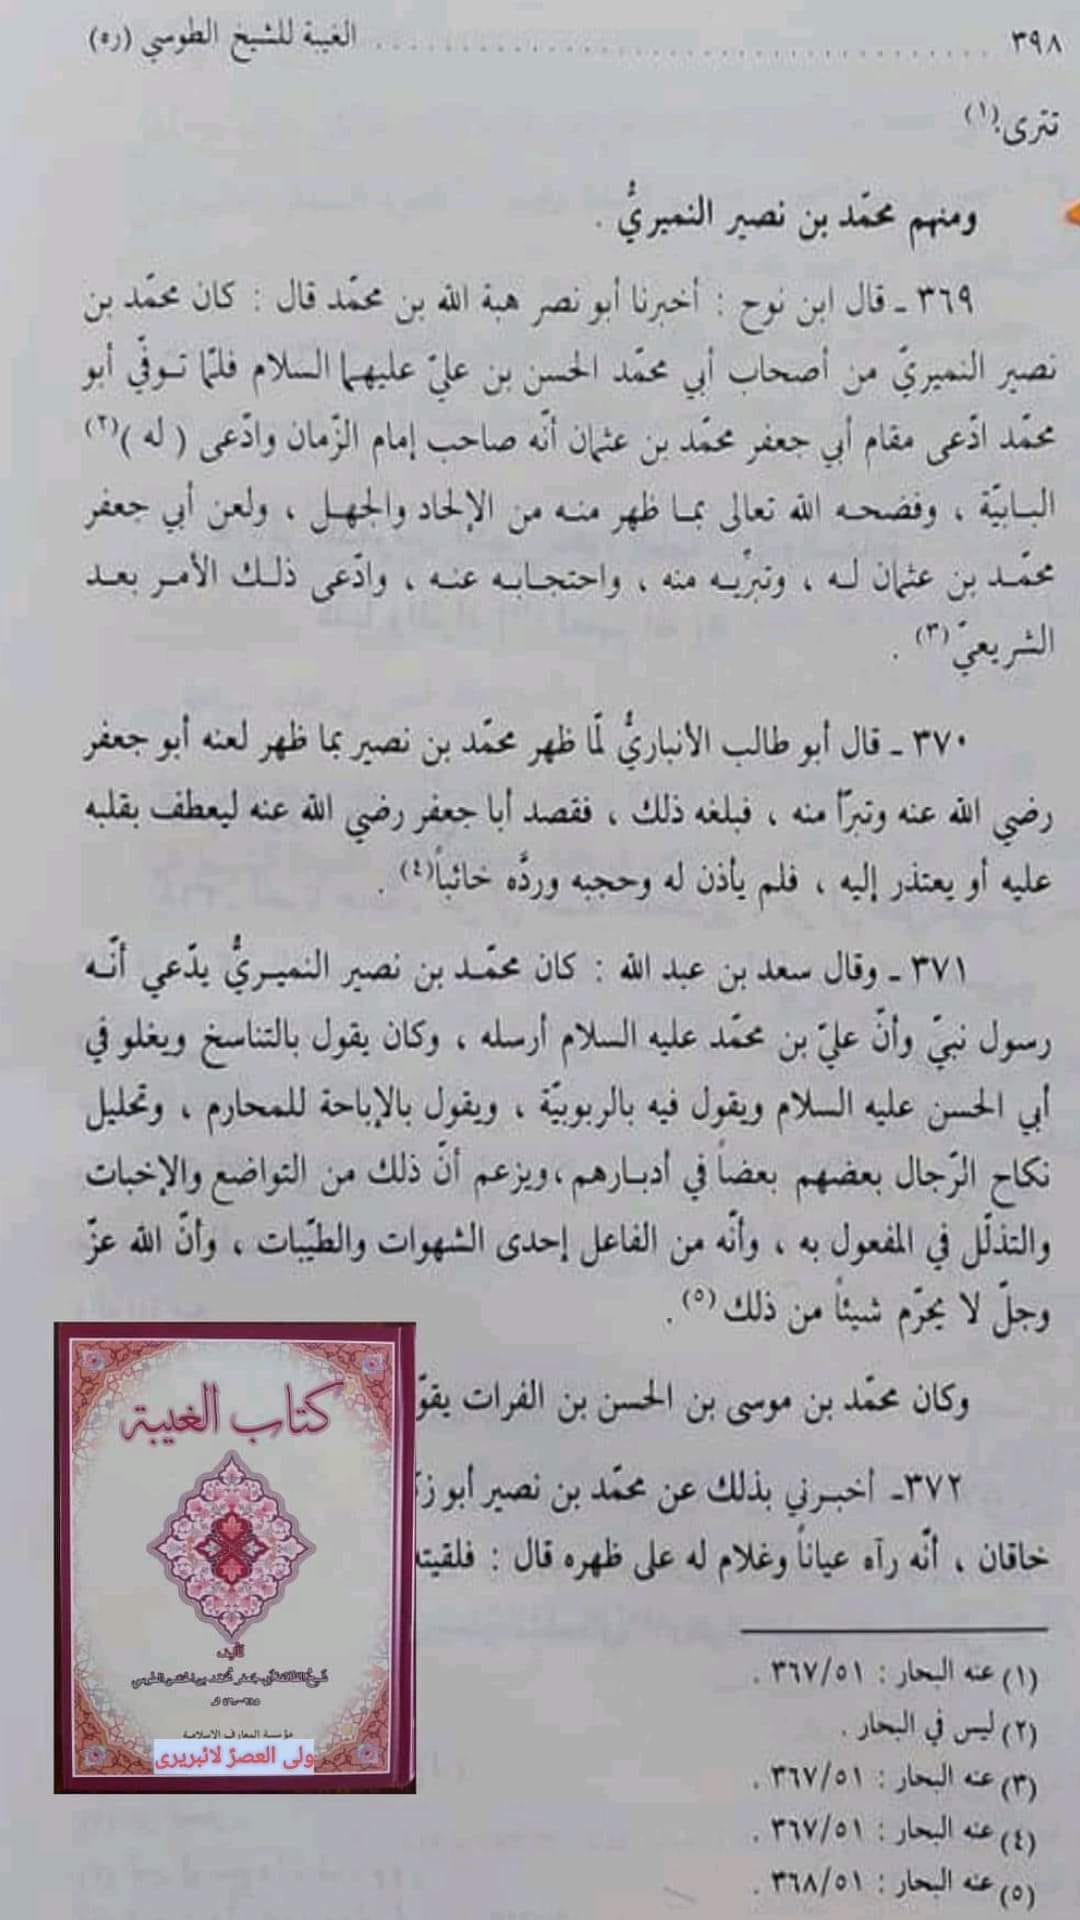 ٣٩٨ ........................ الغيبة للشيخ الطوسي (ره)
تترى.(١)
ومنهم محمّد بن نصير النميريُّ .
٣٦٩ ـ قال ابن نوح : أخبرنا أبو نصر هبة الله بن محمّد قال : كان محمّد بن
نصير النميريّ من أصحاب أبي محمّد الحسن بن عليّ عليهما السلام فلمّا توفّي أبو
محمّد ادّعى مقام أبي جعفر محمّد بن عثمان أنّه صاحب إمام الزّمان وادّعى ( له )(٢)
البابيّة ، وفضحه الله تعالى بما ظهر منه من الإلحاد والجهل ، ولعن أبي جعفر
محمّد بن عثمان له ، وتبرّيه منه ، واحتجابه عنه ، وادّعى ذلك الأمر بعد
الشريعيّ(٣) .
٣٧٠ ـ قال أبو طالب الأنباريُّ لمّا ظهر محمّد بن نصير بما ظهر لعنه أبو جعفر
رضي الله عنه وتبرّأ منه ، فبلغه ذلك ، فقصد أبا جعفر رضي الله عنه ليعطف بقلبه
عليه أو يعتذر إليه ، فلم يأذن له وحجبه وردَّه خائباً(٤) .
٣٧١ ـ وقال سعد بن عبد الله : كان محمّد بن نصير النميريُّ يدّعي أنّه
رسول نبيّ وأنّ عليّ بن محمّد عليه السلام أرسله ، وكان يقول بالتناسخ ويغلو في
أبي الحسن عليه السلام ويقول فيه بالربوبيّة ، ويقول بالإباحة للمحارم ، وتحليل
نكاح الرّجال بعضهم بعضاً في أدبارهم ، ويزعم أنّ ذلك من التواضع والإخبات
والتذلّل في المفعول به ، وأنّه من الفاعل إحدى الشهوات والطيّبات ، وأنّ الله عزّ
وجلّ لا يحرّم شيئاً من ذلك (٥) .
وكان محمّد بن موسى بن الحسن بن الفرات يقوّ
٣٧٢ـ أخبرني بذلك عن محمّد بن نصير أبو زك
خاقان ، أنّه رآه عياناً وغلام له على ظهره قال : فلقيته
(١) عنه البحار : ٣٦٧/٥١ .
(٢) ليس في البحار .
(٣) عنه البحار : ٣٦٧/٥١ .
(٤) عنه البحار : ٣٦٧/٥١ .
(٥) عنه البحار : ٣٦٨/٥١ .
كتاب الغيبة
تأليف
شيخ الطائفة أبي جعفر محمّد بن الحسن الطوسي
٣٨٥-٤٦٠ هـ
مؤسسة المعارف الإسلامية
ولی العصرؑ لائبریری